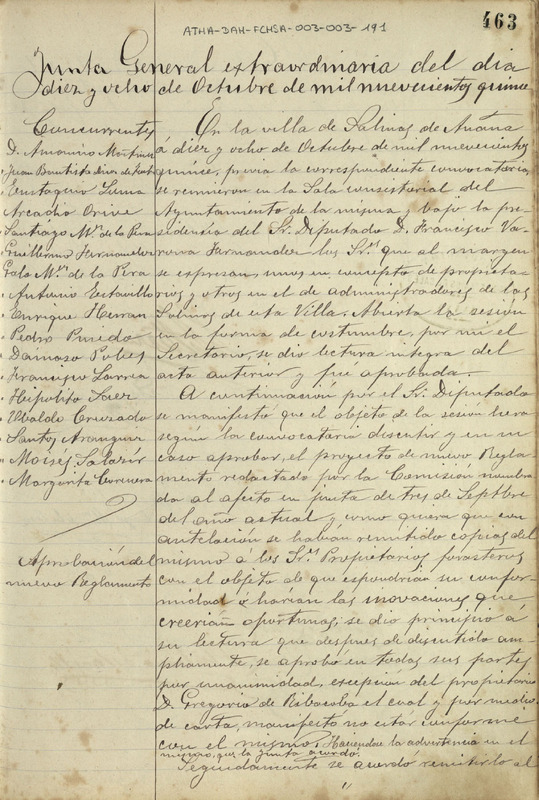 463
ATHA-DAH-FCHSA-003-003-191
Junta General extraordinaria del dia
diez y ocho de Octubre de mil nuevecientos quince
Concurrentes
D. Antonino Martinez
" Juan Bautista
" Eustaquio Luma
Arcadio Orive
" Santiago Mª de la Pera
Guillermo Fernandez
Galo Mª de la Pera
" Antonio Estavillo
" Enrique Herran
" Pedro Pinedo
" Damaso Pobes
" Francisco Larrea
" Hipolito Saez
" Ubaldo Cruzado
" Santos Aranguiz
" Moisés Salazár
" Margarita
Aprobación del
nuevo Reglamento
En la villa de Salinas de Añana
á diez y ocho de Octubre de mil nuevecientos
quince, previa la correspondiente convocatoria,
se reunieron en la Sala consistorial del
Ayuntamiento de la misma y bajo la pre-
sidencia del Sr. Diputado D. Francisco Va-
rona Fernandez los Srs. que al margen
se expresan, unos en concepto de propieta-
rios y otros en el de administradores de las
Salinas de esta Villa. Abierta la sesion
en la forma de costumbre, por mi el
Secretario, se dio lectura integra del
acta anterior y fué aprobada.
A continuación por el Sr. Diputado
se manifestó que el objeto de la sesion hera
según la convocatoria discutir y en su
caso aprobar, el proyecto de nuevo Regla-
mento redactado por la Comisión nombra-
da al efecto en junta de tres de Septbre
del año actual y como quiera que con
antelación se habian remitido copias del
mismo a los Srs. Propietarios forasteros
con el objeto de que expondrian su confor-
midad ó harian las inovaciones que
creerian oportunas; se dio principio á
su lectura que despues de discutirlo am-
pliamente, se aprobó en todas sus partes
por unanimidad, excepción del propietario
D. Gregorio de Ribacoba el cual y por medio
de carta, manifestó no estar conforme
con el mismo. Haciendose la advertencia en el
mismo, que la Junta acordó.
Seguidamente se acordó remitirlo al
"